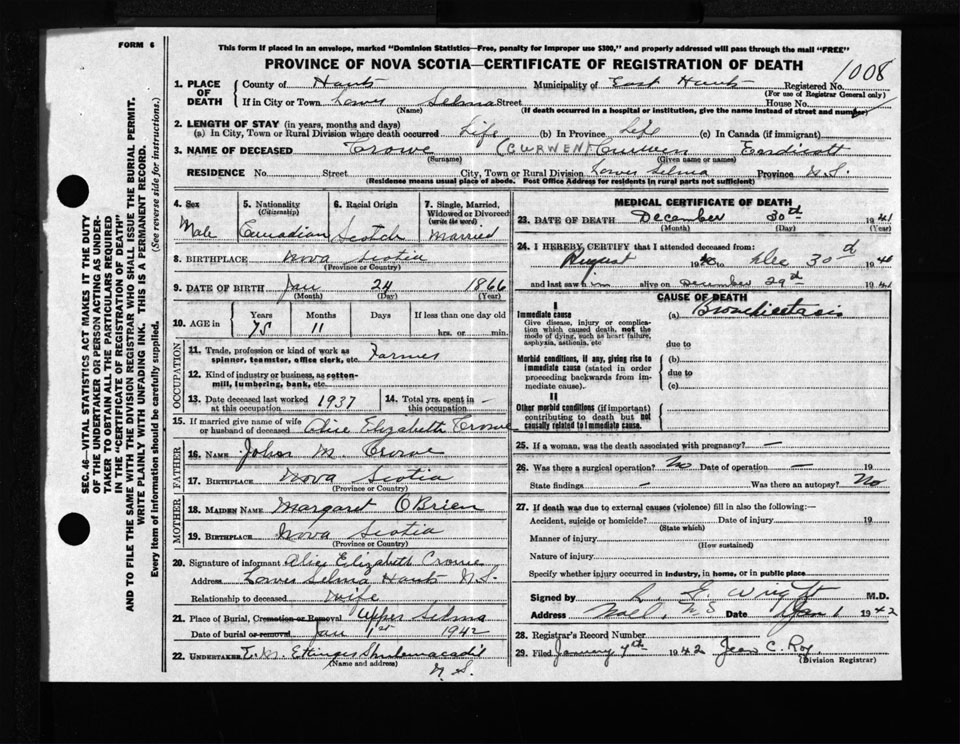 FORM 6
This form if placed in an envelope, marked "Dominion Statistics—Free, penalty for improper use $300," and properly addressed will pass through the mail "FREE"
PROVINCE OF NOVA SCOTIA—CERTIFICATE OF REGISTRATION OF DEATH
1008
1. PLACE OF DEATH County of Hants Municipality of East Hants Registered No.
(For use of Registrar General only)
If in City or Town Lower Selma Street House No.
(Name) (If death occurred in a hospital or institution, give the name instead of street and number)
2. LENGTH OF STAY (in years, months and days)
(a) In City, Town or Rural Division where death occurred Life (b) In Province Life (c) In Canada (if immigrant)
3. NAME OF DECEASED Crowe (CURWEN) Curwen Endicott
(Surname) (Given name or names)
RESIDENCE No. Street City, Town or Rural Division Lower Selma Province N.S.
(Residence means usual place of abode. Post Office Address for residents in rural parts not sufficient)
4. Sex Male
5. Nationality (Citizenship) Canadian
6. Racial Origin Scotch
7. Single, Married, Widowed or Divorced (write the word) Married
8. BIRTHPLACE Nova Scotia
(Province or Country)
9. DATE OF BIRTH Jan 24 1866
(Month) (Day) (Year)
10. AGE in Years Months Days If less than one day old
75 11 hrs. or min.
OCCUPATION
11. Trade, profession or kind of work as spinner, teamster, office clerk, etc. Farmer
12. Kind of industry or business, as cotton-mill, lumbering, bank, etc.
13. Date deceased last worked at this occupation 1937
14. Total yrs. spent in this occupation —
15. If married give name of wife or husband of deceased Alice Elizabeth Crowe
FATHER
16. NAME John M. Crowe
17. BIRTHPLACE Nova Scotia
(Province or Country)
MOTHER
18. MAIDEN NAME Margaret O'Brien
19. BIRTHPLACE Nova Scotia
(Province or Country)
20. Signature of informant Alice Elizabeth Crowe
Address Lower Selma Hants N.S.
Relationship to deceased Wife
21. Place of Burial, Cremation or Removal Upper Selma
Date of burial or removal Jan 1st 1942
22. UNDERTAKER E.M. Ettinger Shubenacadie
(Name and address) N.S.
MEDICAL CERTIFICATE OF DEATH
23. DATE OF DEATH December 30th 1941
(Month) (Day) (Year)
24. I HEREBY CERTIFY that I attended deceased from:
August to Dec 30th
and last saw him alive on December 29th 1941
CAUSE OF DEATH
I
Immediate cause (a) Bronchiectasis
Give disease, injury or complication which caused death, not the mode of dying, such as heart failure, asphyxia, asthenia, etc
due to
Morbid conditions, if any, giving rise to immediate cause (stated in order proceeding backwards from immediate cause).
(b)
due to
(c)
II
Other morbid conditions (if important) contributing to death but not causally related to immediate cause.
25. If a woman, was the death associated with pregnancy? —
26. Was there a surgical operation? No Date of operation — 19
State findings — Was there an autopsy? No
27. If death was due to external causes (violence) fill in also the following:—
Accident, suicide or homicide? Date of injury 19
(State which)
Manner of injury
(How sustained)
Nature of injury
Specify whether injury occurred in industry, in home, or in public place
Signed by Wright M.D.
Address Noel, N S Date Jan 1 1942
28. Registrar's Record Number
29. Filed January 7th 1942 Jean C. Roy
(Division Registrar)
SEC. 46—VITAL STATISTICS ACT MAKES IT THE DUTY
OF THE UNDERTAKER OR PERSON ACTING AS UNDER-
TAKER TO OBTAIN ALL THE PARTICULARS REQUIRED
IN THE "CERTIFICATE OF REGISTRATION OF DEATH"
AND TO FILE THE SAME WITH THE DIVISION REGISTRAR WHO SHALL ISSUE THE BURIAL PERMIT.
WRITE PLAINLY WITH UNFADING INK. THIS IS A PERMANENT RECORD.
Every item of information should be carefully supplied. (See reverse side for instructions.)